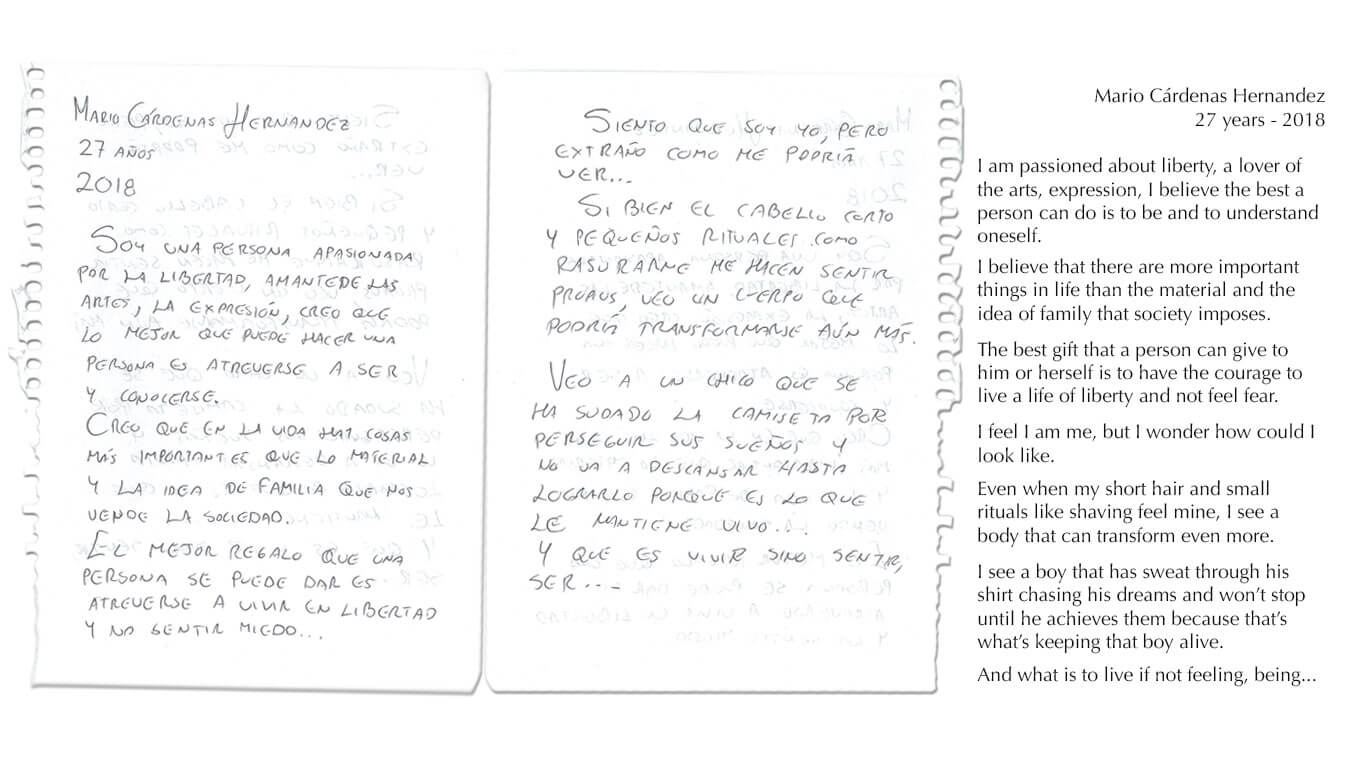 MARIO CÁRDENAS HERNANDEZ
27 AÑOS
2018
SOY UNA PERSONA APASIONADA
POR LA LIBERTAD, AMANTE DE LAS
ARTES, LA EXPRESIÓN, CREO QUE
LO MEJOR QUE PUEDE HACER UNA
PERSONA ES ATREVERSE A SER
Y CONOCERSE.
CREO QUE EN LA VIDA HAY COSAS
MÁS IMPORTANTES QUE LO MATERIAL
Y LA IDEA DE FAMILIA QUE NOS
VENDE LA SOCIEDAD.
EL MEJOR REGALO QUE UNA
PERSONA SE PUEDE DAR ES
ATREVERSE A VIVIR EN LIBERTAD
Y NO SENTIR MIEDO...
SIENTO QUE SOY YO, PERO
EXTRAÑO COMO ME PODRÍA
VER...
SI BIEN EL CABELLO CORTO
Y PEQUEÑOS RITUALES COMO
RASURARME ME HACEN SENTIR
PROPIOS, VEO UN CUERPO QUE
PODRÍA TRANSFORMARSE AÚN MÁS.
VEO A UN CHICO QUE SE
HA SUDADO LA CAMISETA POR
PERSEGUIR SUS SUEÑOS Y
NO VA A DESCANSAR HASTA
LOGRARLO PORQUE ES LO QUE
LE MANTIENE VIVO...
Y QUE ES VIVIR SINO SENTIR,
SER...
Mario Cárdenas Hernandez
27 years - 2018
I am passioned about liberty, a lover of
the arts, expression, I believe the best a
person can do is to be and to understand
oneself.
I believe that there are more important
things in life than the material and the
idea of family that society imposes.
The best gift that a person can give to
him or herself is to have the courage to
live a life of liberty and not feel fear.
I feel I am me, but I wonder how could I
look like.
Even when my short hair and small
rituals like shaving feel mine, I see a
body that can transform even more.
I see a boy that has sweat through his
shirt chasing his dreams and won’t stop
until he achieves them because that’s
what’s keeping that boy alive.
And what is to live if not feeling, being...